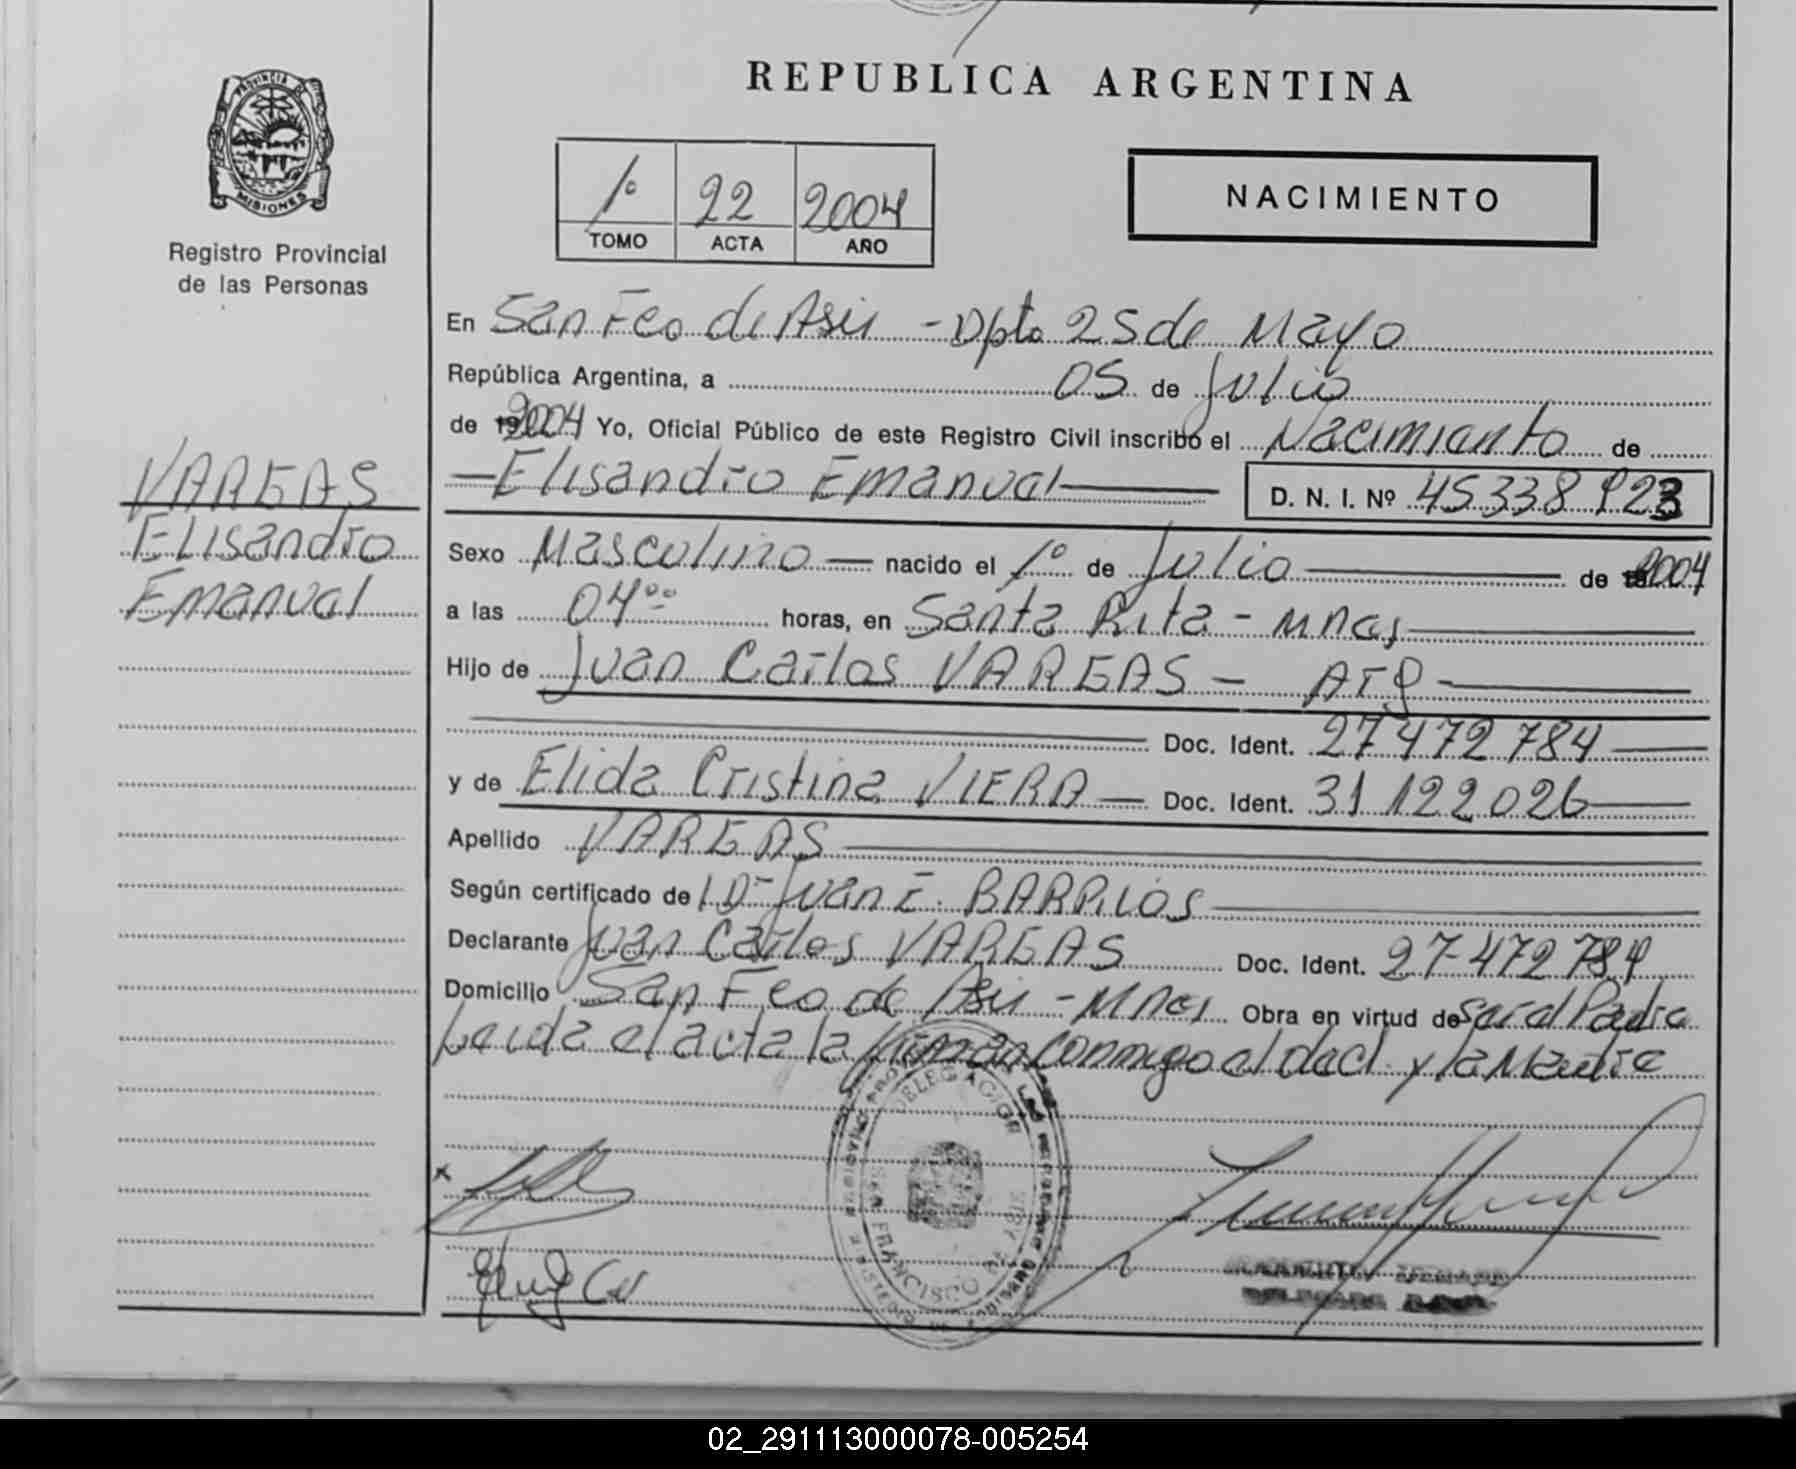 REPUBLICA ARGENTINA
PROVINCIA DE
MISIONES
Registro Provincial
de las Personas
1º 22 2004
TOMO ACTA AÑO
NACIMIENTO
En San Fco de Asis - Dpto 25 de Mayo
República Argentina, a 05 de Julio
de 2004 Yo, Oficial Público de este Registro Civil inscribo el Nacimiento de
Elisandro Emanuel D. N. I. Nº 45 338 923
VARGAS
Elisandro
Emanuel
Sexo Masculino nacido el 1º de Julio de 2004
a las 04ºº horas, en Santa Rita - Mnes
Hijo de Juan Carlos VARGAS - Arg
Doc. Ident. 27 472 784
y de Elida Cristina VIERA Doc. Ident. 31 122 026
Apellido VARGAS
Según certificado de l Dr Juan E. BARRIOS
Declarante Juan Carlos VARGAS Doc. Ident. 27 472 784
Domicilio San Fco de Asis - Mnes Obra en virtud de ser el Padre
Leida el acta la firman conmigo el decl. y la Madre
DELEGACION
SAN FRANCISCO
02_291113000078-005254